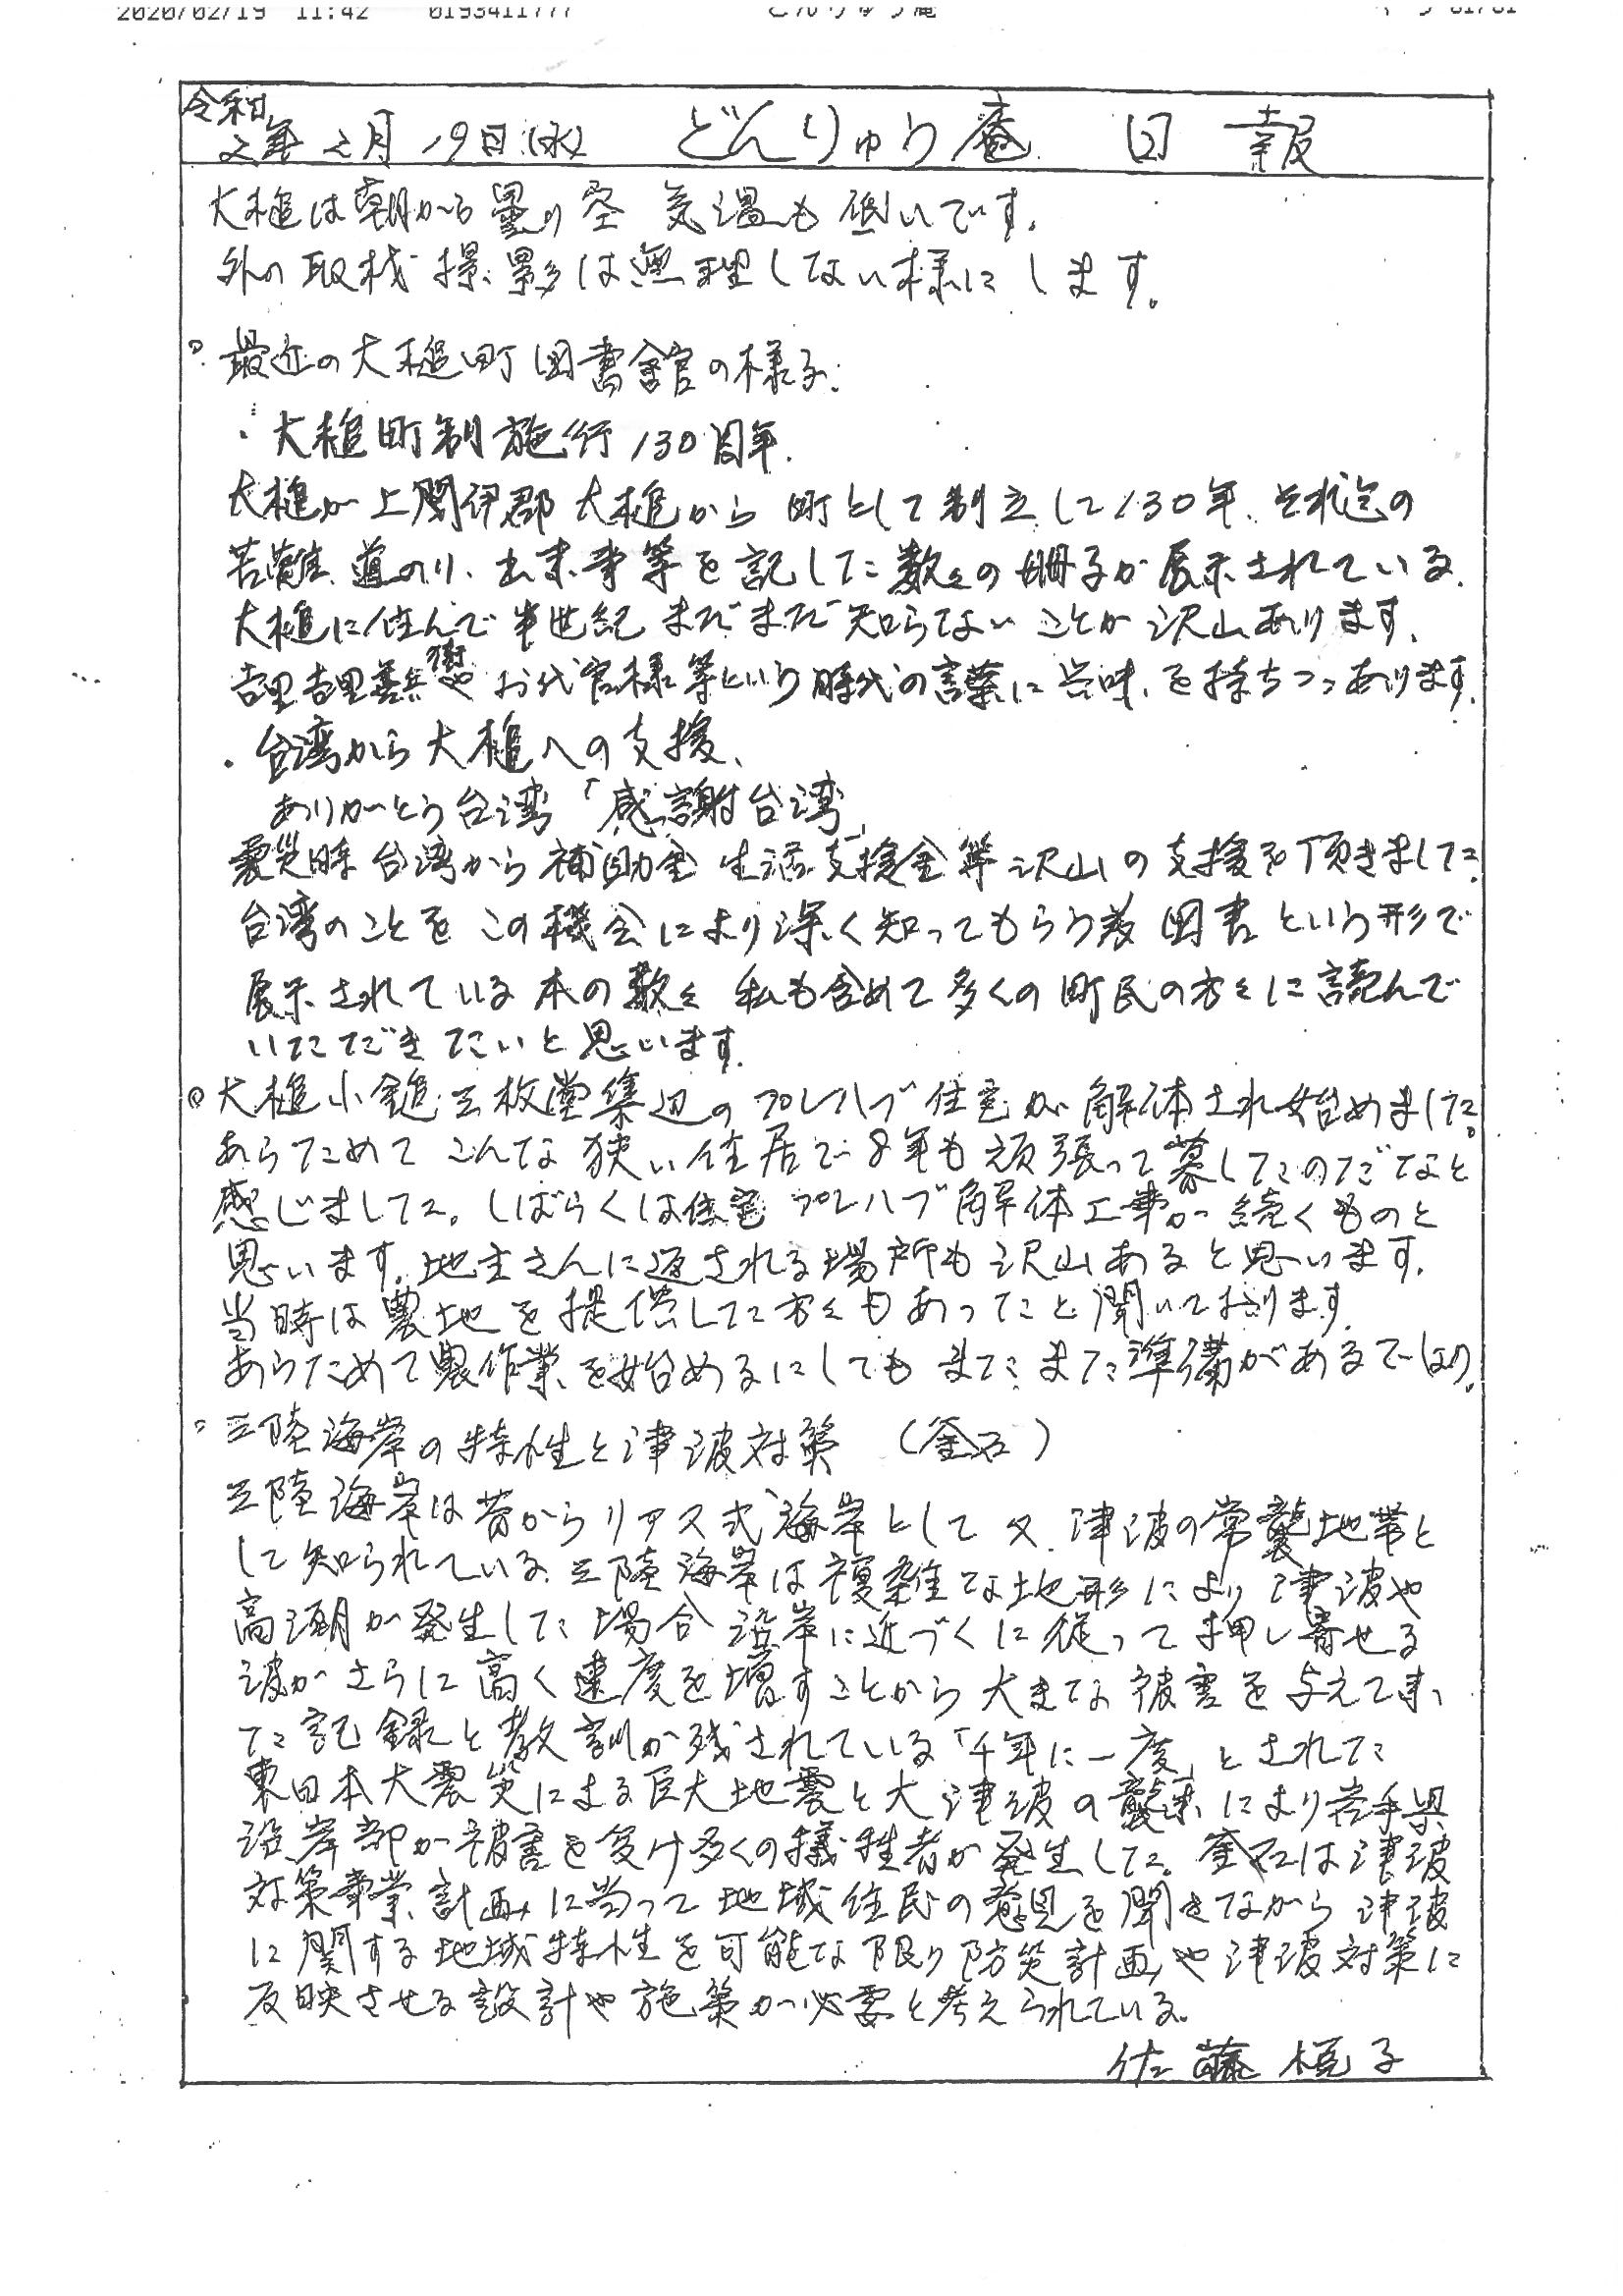 2020/02/19 11:42 0193411777 どんりゅう庵
令和
2年2月19日(水) どんりゅう庵 日報
大槌は朝から曇り空 気温も低いです。
外の取材撮影は無理しない様にします。
○最近の大槌町図書館の様子.
・大槌町制施行130周年.
大槌が上閉伊郡大槌から町として制立して130年、それ迄の
苦難、道のり、出来事等を記した数々の冊子が展示されている.
大槌に住んで半世紀まだまだ知らないことが沢山あります.
吉里吉里善兵衛やお代官様等という時代の言葉に興味を持ちつつあります.
・台湾から大槌への支援、
ありがとう台湾「感謝台湾」
震災時台湾から補助金 生活支援金等沢山の支援を頂きました.
台湾のことをこの機会により深く知ってもらう為 図書という形で
展示されている本の数々 私も含めて多くの町民の方々に読んで
いただきたいと思います.
◎大槌小鎚三枚堂集辺のプレハブ住宅が解体され始めました。
あらためてこんな狭い住居で8年も頑張って暮したのだなと
感じました。しばらくは住宅プレハブ解体工事が続くものと
思います.地主さんに返される場所も沢山あると思います.
当時は農地を提供した方々もあったと聞いております.
あらためて農作業を始めるにしてもまたまた準備があるでしょう.
○三陸海岸の特性と津波対策 (釜石)
三陸海岸は昔からリアス式海岸として又、津波の常襲地帯と
して知られている.三陸海岸は複雑な地形により津波や
高潮が発生した場合沿岸に近づくに従って押し寄せる
波がさらに高く速度を増すことから大きな被害を与えてき
た記録と教訓が残されている「千年に一度」とされた
東日本大震災による巨大地震と大津波の襲来により岩手県
沿岸部が被害を受け多くの犠牲者が発生した。釜石は津波
対策事業計画に当って地域住民の意見を聞きながら津波
に関する地域特性を可能な限り防災計画や津波対策に
反映させる設計や施策が必要と考えられている.
佐藤 子